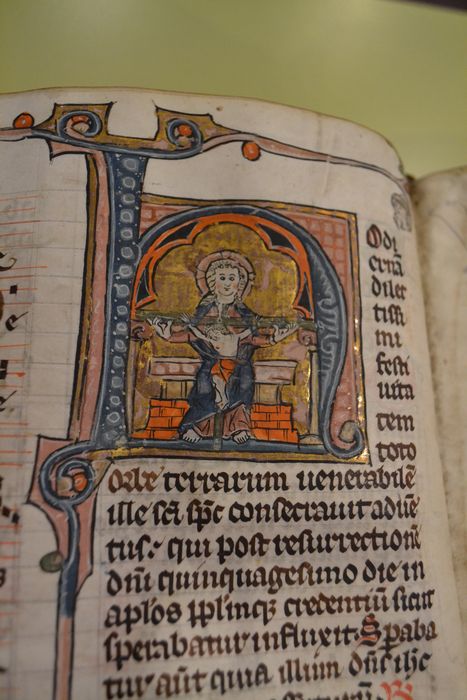 HOdi
ernā
dilec
tissi
mi
festi
uita
tem
toto
orbe terrarum uenerabilē
ille scī spc̄ consecrauit aduē
tus: qui post resurrectionē
dnī quinquagesimo die in
aplos pplinqꝫ credentiū sicut
sperabatur influxit. Speraba
tur aūt quia illum dnc̄ ihc̄